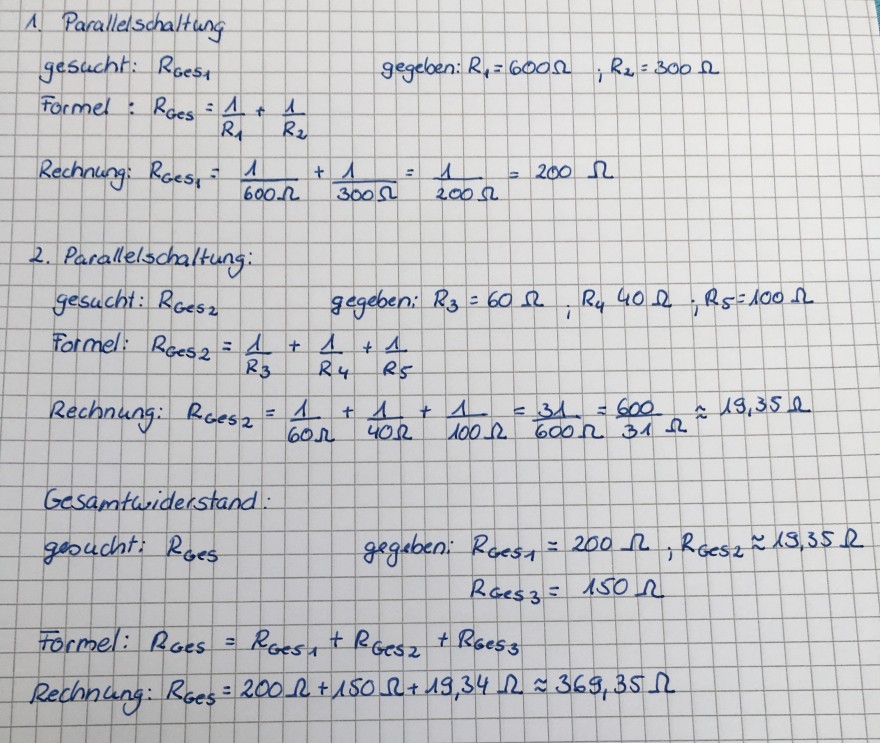 1. Parallelschaltung
gesucht: RGes1 gegeben: R1 = 600 Ω ; R2 = 300 Ω
Formel : RGes = 1/R1 + 1/R2
Rechnung: RGes1 = 1/600 Ω + 1/300 Ω = 1/200 Ω = 200 Ω
2. Parallelschaltung:
gesucht: RGes2 gegeben: R3 = 60 Ω ; R4 40 Ω ; R5 = 100 Ω
Formel: RGes2 = 1/R3 + 1/R4 + 1/R5
Rechnung: RGes2 = 1/60 Ω + 1/40 Ω + 1/100 Ω = 31/600 Ω = 600/31 Ω ≈ 19,35 Ω
Gesamtwiderstand:
gesucht: RGes gegeben: RGes1 = 200 Ω ; RGes2 ≈ 19,35 Ω
RGes3 = 150 Ω
Formel: RGes = RGes1 + RGes2 + RGes3
Rechnung: RGes = 200 Ω + 150 Ω + 19,34 Ω ≈ 369,35 Ω